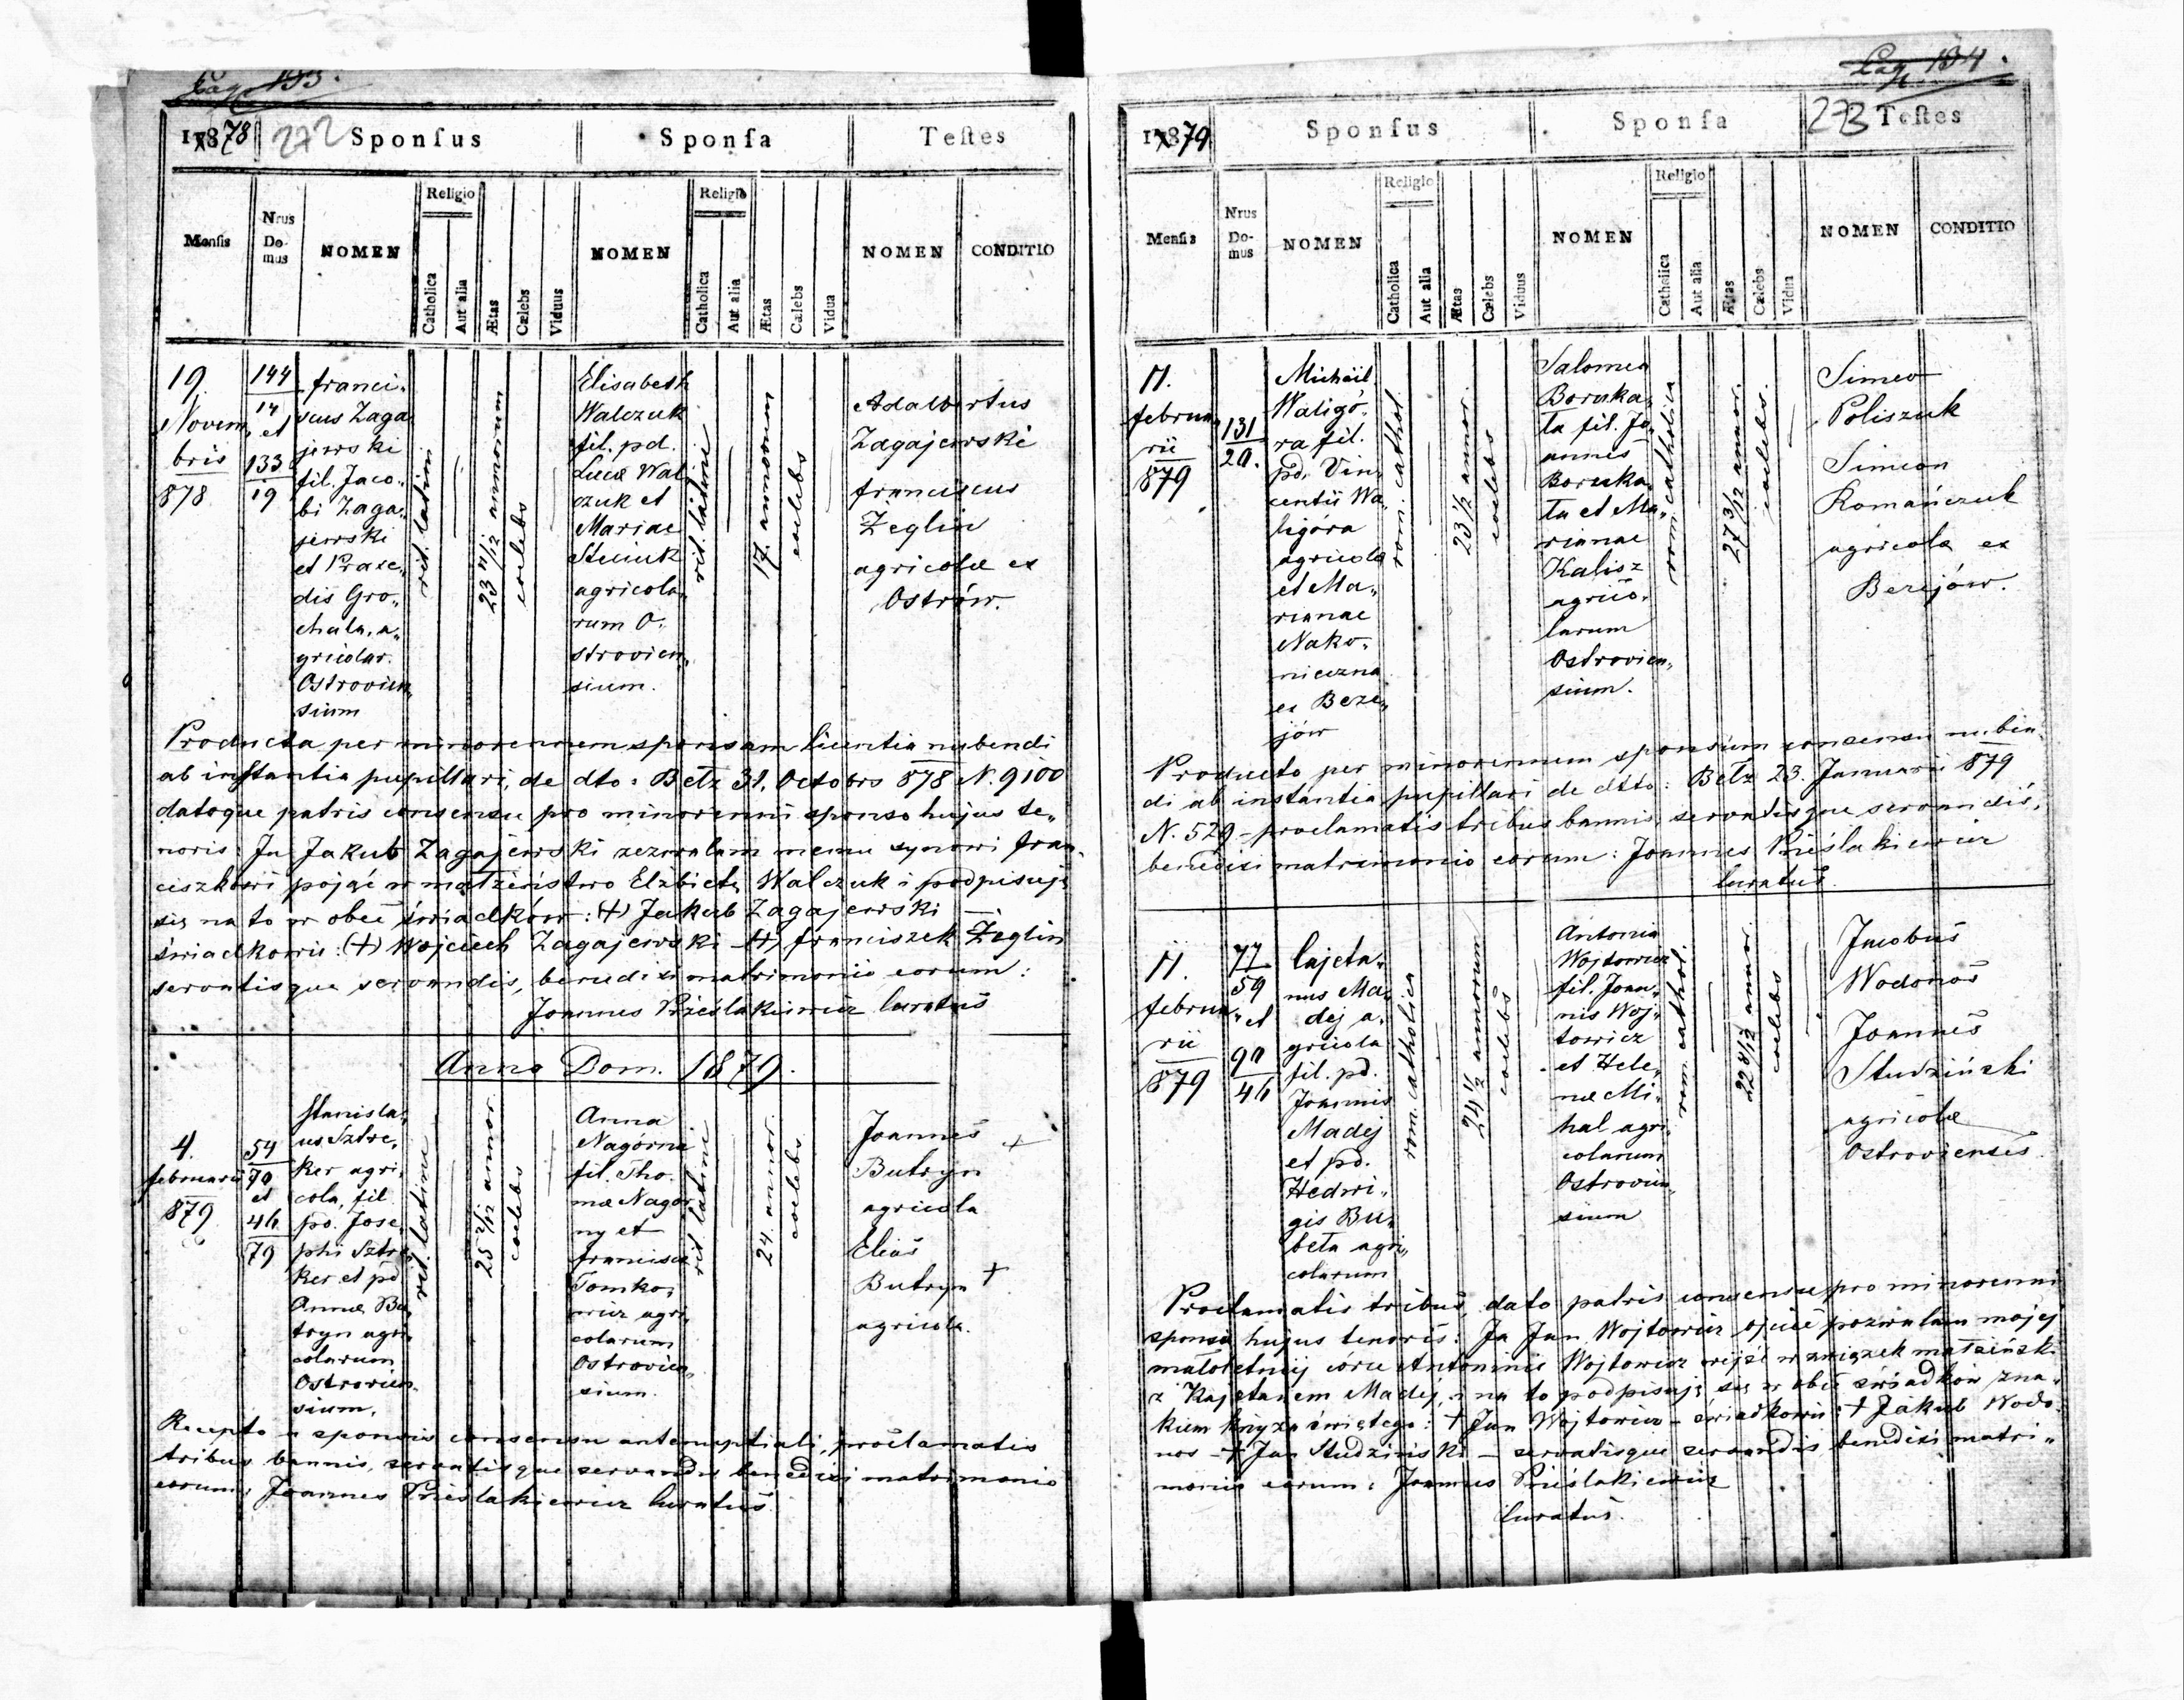 Pag. 133.
1878 272 Sponſus Sponſa Teſtes
Menſis Nrus Do- mus NOMEN Religio Catholica Aut alia Ætas Cælebs Viduus NOMEN Religio Catholica Aut alia Ætas Cælebs Vidua NOMEN CONDITIO
19
Novem
bris
878
144
14
et
133
19
franci„
scus Zaga
jewski
fil. Jaco„
bi Zaga„
jewski
et Praxe„
dis Gro„
chala, a„
gricolar.
Ostrovien
sium
rit. latini
23 11/12 annorum
coelebs
Elisabeth
Walczuk
fil. pd.
Lucæ Wal
czuk et
Mariae
agricola„
rum O„
strovien„
sium.
rit. latini
17. annorum
coelebs
Adalbertus
Zagajewski
franciscus
Żeglin
agricolæ ex
Ostrów.
Producta per minorennem sponsam licentia nubendi
ab instantia pupillari, de dto: Bełz 31. Octobrs 878 N. 9100
datoque patris consensu pro minorenni sponso hujus te„
noris: Ja Jakub Zagajewski zezwalam memu synowi fran„
ciszkowi pojąć w małżeństwo Elżbietę Walczuk i podpisuję
się na to w obec świadków: (+) Jakub Zagajewski —
świadkowie: (+) Wojciech Zagajewski (+) franciszek Żeglin
servatisque servandis, benedixi matrimonio eorum:
Joannes Prześlakiewicz Curatus
Anno Dom. 1879.
4.
februarii
879
54
70
et
46
79
Stanisla„
us Sztre„
ker agri„
cola, fil.
pd. Jose„
phi Sztre
ker et pd
Annæ Bu„
tryn agri
colarum
Ostrovien„
sium.
rit. latini
25 2/12 annor.
coelebs
Anna
Nagórna
fil. Tho„
mæ Nagór
ny et
francisca
Tomko„
wicz agri
colarum
Ostrovien„
sium.
rit. latini
24. annor.
coelebs
Joannes +
Butryn
agricola
Elias
Butryn +
agricola.
Recepto a sponsis consensu antenuptiali, proclamatis
tribus bannis, servatisque servandis benedixi matrimonio
eorum: Joannes Prześlakiewicz Curatus
Pag. 134.
1879 Sponſus Sponſa 273 Teſtes
Menſis Nrus Do- mus NOMEN Religio Catholica Aut alia Ætas Cælebs Viduus NOMEN Religio Catholica Aut alia Ætas Cælebs Vidua NOMEN CONDITIO
11.
februa„
rii
879
131
20.
Michäil
Waligó„
ra fil.
pd. Vin„
centii Wa„
ligóra
agricola
et Ma„
rianae
Nako„
nieczna
ex Beze„
jów
rom. cathol.
23 1/2 annor.
coelebs
Salomea
Boruka„
ta fil. Jo„
annis
Boruka„
ta et Ma„
rianae
Kalisz
agrico„
larum
Ostrovien„
sium.
rom. catholica
27 3/12 annor.
coelebs.
Simeo
Poliszuk
Simeon
Romańczuk
agricolæ ex
Bezejów.
Producto per minorennem sponsum consensu nuben„
di ab instantia pupillari de dtto: Bełz 23. Januarii 879
N. 529 — proclamatis tribus bannis, servatisque servandis,
benedixi matrimonio eorum: Joannes Prześlakiewicz
Curatus.
11.
februa„
rii
879
77
59
et
90
46
Cajeta„
nus Ma„
dej a„
gricola
fil. pd.
Joannis
Madej
et pd.
Hedwi„
gis Bu„
beła agri„
colarum
rom. catholica
24 1/2 annorum
coelebs
Antonia
Wojtowicz
fil. Joan„
nis Woj„
towicz
et Hele„
næ Mi„
hal agri„
colarum
Ostrovien„
sium
rom. cathol.
22 8/12 annor.
coelebs
Jacobus
Wodonos
Joannes
Studziński
agricolæ
Ostrovienses.
Proclamatis tribus, dato patris consensu pro minorenni
sponsa hujus tenoris: Ja Jan Wojtowicz ojciec pozwalam mojej
małoletniej córce Antoninie Wojtowicz wejść w związek małżeński
z Kajetanem Madej, i na to podpisuję się w obec świadków zna„
kiem krzyża świętego: + Jan Wojtowicz — świadkowie: + Jakub Wodo„
nos — + Jan Studziński — servatisque servandis benedixi matri„
monio eorum: Joannes Prześlakiewicz
Curatus.